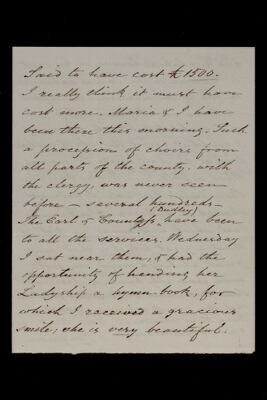 Said to have cost £1500.
I really think it must have
cost more. Maria & I have
been there this morning. Such
a procession of choirs from
all parts of the county, with
the clergy, was never seen
before – several hundreds –
(Dudley)
The Earl & Countess, have been
to all the services. Wednesday
I sat near them, & had the
opportunity of handing her
Ladyship a hymn-book, for
which I received a gracious
smile; she is very beautiful.